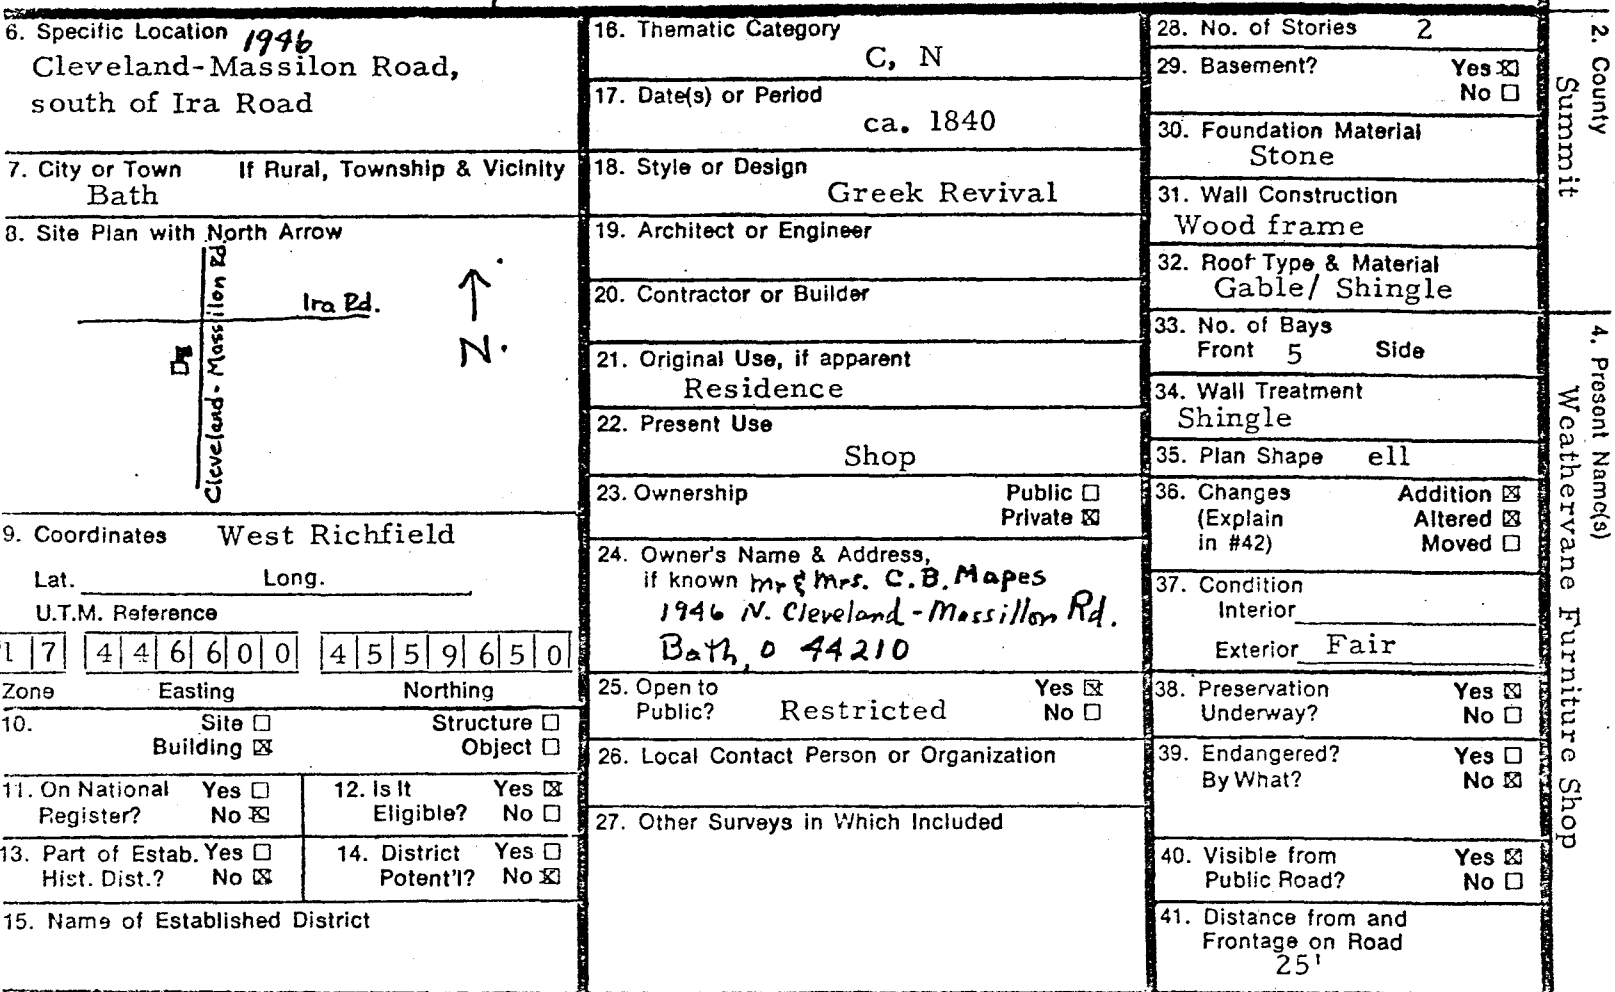 6. Specific Location 1946
Cleveland-Massilon Road,
south of Ira Road
7. City or Town If Rural, Township & Vicinity
Bath
8. Site Plan with North Arrow
Cleveland-Massilon Rd
Ira Rd.
N.
9. Coordinates West Richfield
Lat. Long.
U.T.M. Reference
17 446600 4559650
Zone Easting Northing
10. Site ☐ Structure ☐
Building ☒ Object ☐
11. On National Yes ☐
Register? No ☒
12. Is It Yes ☒
Eligible? No ☐
13. Part of Estab. Yes ☐
Hist. Dist.? No ☒
14. District Yes ☐
Potent'l? No ☒
15. Name of Established District
16. Thematic Category
C, N
17. Date(s) or Period
ca. 1840
18. Style or Design
Greek Revival
19. Architect or Engineer
20. Contractor or Builder
21. Original Use, if apparent
Residence
22. Present Use
Shop
23. Ownership Public ☐
Private ☒
24. Owner's Name & Address,
if known Mr & Mrs. C.B. Mapes
1946 N. Cleveland-Massillon Rd.
Bath, O 44210
25. Open to Yes ☒
Public? Restricted No ☐
26. Local Contact Person or Organization
27. Other Surveys in Which Included
28. No. of Stories 2
29. Basement? Yes ☒
No ☐
30. Foundation Material
Stone
31. Wall Construction
Wood frame
32. Roof Type & Material
Gable/ Shingle
33. No. of Bays
Front 5 Side
34. Wall Treatment
Shingle
35. Plan Shape ell
36. Changes Addition ☒
(Explain Altered ☒
in #42) Moved ☐
37. Condition
Interior
Exterior Fair
38. Preservation Yes ☒
Underway? No ☐
39. Endangered? Yes ☐
By What? No ☒
40. Visible from Yes ☒
Public Road? No ☐
41. Distance from and
Frontage on Road
25'
2. County
Summit
4. Present Name(s)
Weathervane Furniture Shop